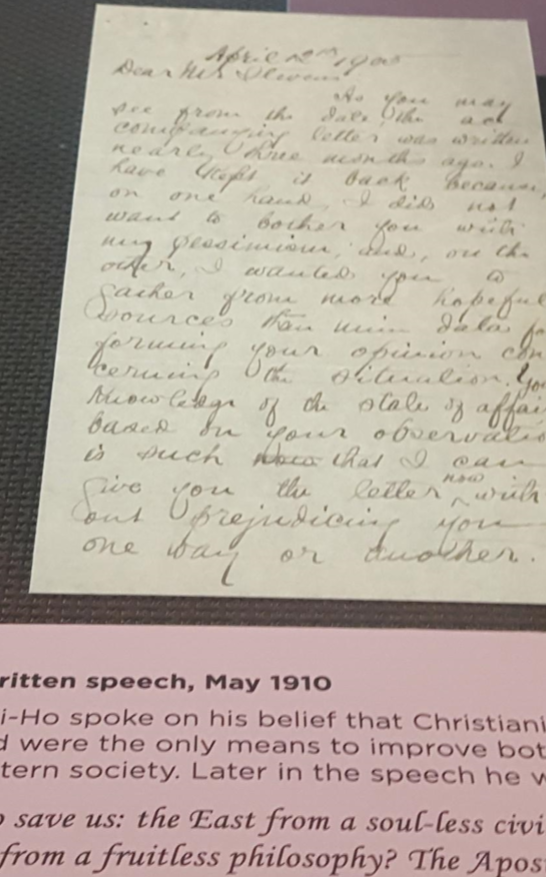 April 12th 1905
Dear Mr. Stevens
As you may
see from the date, the ac
companying letter was written
nearly three months ago. I
have kept it back because,
on one hand, I did not
want to bother you with
my pessimism, and, on the
other, I wanted you to
gather from more hopeful
sources than mine data fo
forming your opinion con
cerning the situation. You
knowledge of the state of affai
based on your observatio
is such that I can
give you the letter now with
out prejudicing you
one way or another.
ritten speech, May 1910
i-Ho spoke on his belief that Christiani
d were the only means to improve bot
tern society. Later in the speech he w
o save us: the East from a soul-less civi
from a fruitless philosophy? The Apos